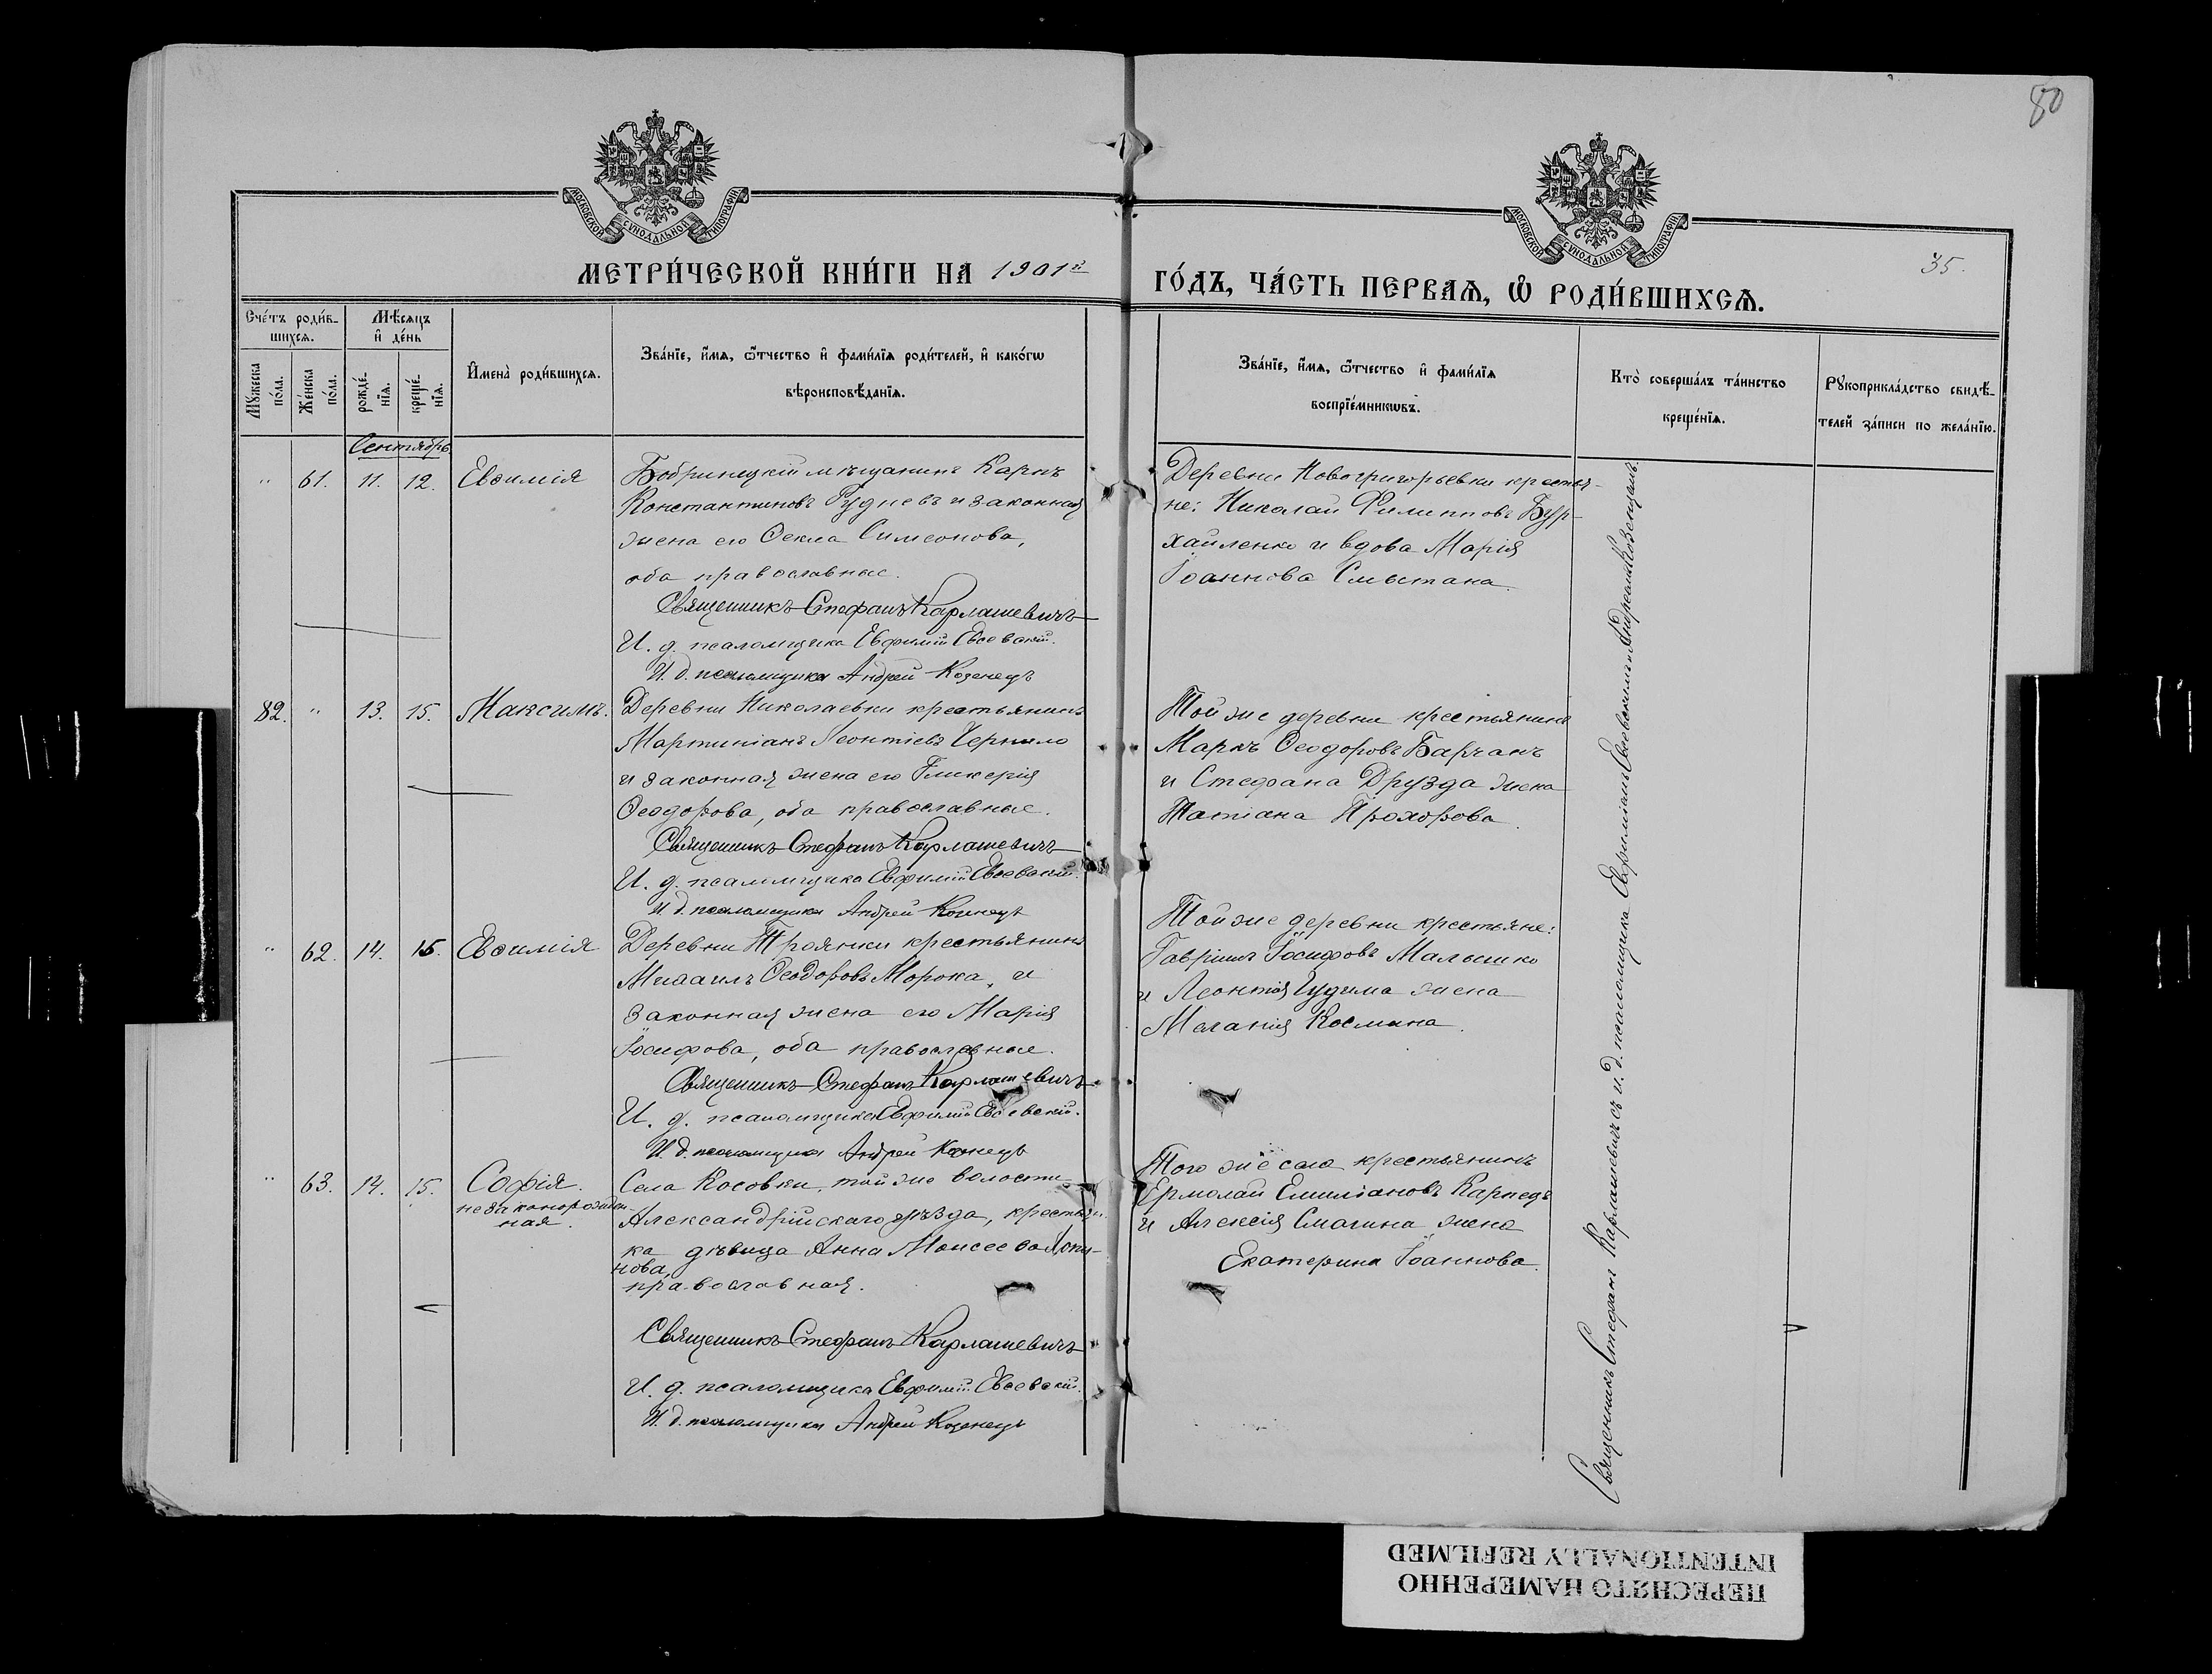 80
МОСКОВСКОЙ СѴНОДАЛЬНОЙ ТИПОГРАФІИ
МОСКОВСКОЙ СѴНОДАЛЬНОЙ ТИПОГРАФІИ
МЕТРИ́ЧЕСКОЙ КНИ́ГИ НА 1901й
ГО́ДЪ, ЧА́СТЬ ПЕРВАѦ, Ѿ РОДИ́ВШИХСѦ.
35.
Сче́тъ роди́в-
шихсѧ.
Мѣ́сѧцъ
и҆ де́нь
Мꙋ́жеска
по́ла.
Же́нска
по́ла.
рожде́-
нїѧ.
креще́-
нїѧ.
И҆мена̀ роди́вшихсѧ.
Зва́нїе, и҆́мѧ, ѻ҆́тчество и҆ фами́лїѧ роди́телей, и҆ како́гѡ
вѣроисповѣ́данїѧ.
Зва́нїе, и҆́мѧ, ѻ҆́тчество и҆ фами́лїѧ
воспрїе́мникѡвъ.
Кто̀ соверша́лъ та́инство
креще́нїѧ.
Рꙋкоприкла́дство свидѣ́-
телей за́писи по жела́нїю.
Сентябрь
" 61. 11. 12. Евѳимія
Бобринецкій мѣщанинъ Карпъ
Константиновъ Рудневъ и законная
жена его Ѳекла Симеонова,
оба православные.
Священникъ Стефанъ Карлашевичъ
И. д. псаломщика Евфимій Евсевскій.
И. д. псаломщика Андрей Козенецъ
Деревни Новогригорьевки крестья-
не: Николай Филипповъ Бур-
хайленко и вдова Марія
Іоаннова Сметана.
82. " 13. 15. Максимъ.
Деревни Николаевки крестьянинъ
Мартиніанъ Леонтіевъ Чернило
и законная жена его Гликерія
Ѳеодорова, оба православные.
Священникъ Стефанъ Карлашевичъ
И. д. псаломщика Евфимій Евсевскій.
И. д. псаломщика Андрей Козенецъ
Той же деревни крестьянинъ
Маркъ Ѳеодоровъ Барчанъ
и Стефана Друзда жена
Татіана Прохорова.
" 62. 14. 15. Евѳимія
Деревни Троянки крестьянинъ
Михаилъ Ѳеодоровъ Морока, и
законная жена его Марія
Іосифова, оба православные.
Священникъ Стефанъ Карлашевичъ
И. д. псаломщика Евфимій Евсевскій.
И. д. псаломщика Андрей Козенецъ
Той же деревни крестьяне:
Гавріилъ Іосифовъ Малышко
и Леонтія Гудима жена
Меланія Космина.
" 63. 14. 15. Софія.
незаконорожден-
ная.
Села Косовки, той же волости
Александрійскаго уѣзда, крестьян-
ка дѣвица Анна Моисеева
нова,
православная.
Священникъ Стефанъ Карлашевичъ
И. д. псаломщика Евфимій Евсевскій.
И. д. псаломщика Андрей Козенецъ
Того же села крестьянинъ
Ермолай Емиліановъ Карпецъ
и Алексія Смагина жена
Екатерина Іоаннова.
Священникъ Стефанъ Карлашевичъ съ и. д. псаломщика Евфиміемъ Евсевскимъ и Андреемъ Козенцомъ.
ПЕРЕСНЯТО НАМЕРЕННО
INTENTIONALLY REFILMED